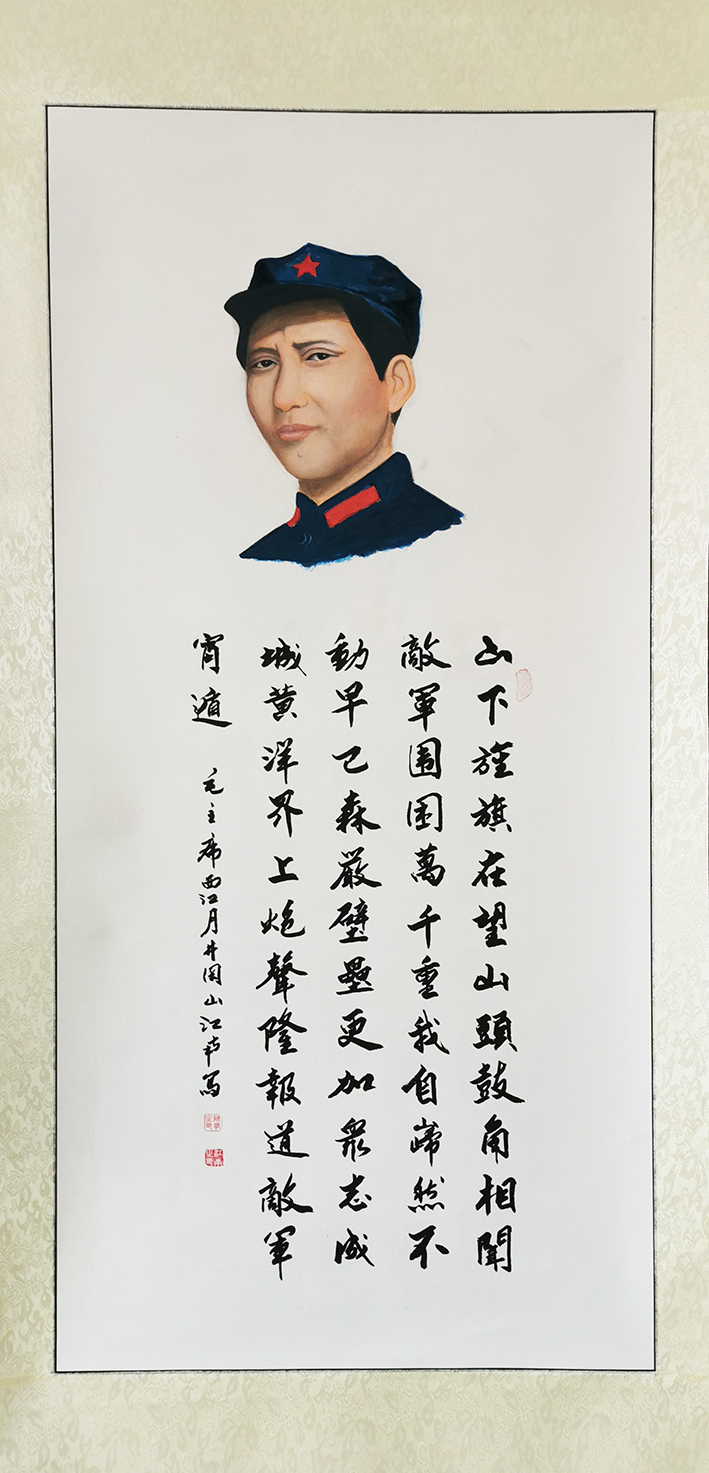 山下旌旗在望山頭鼓角相聞
敵軍圍困萬千重我自巋然不
動早已森嚴壁壘更加眾志成
城黄洋界上炮聲隆報道敵軍
宵遁
毛主席西江月井岡山江卉写